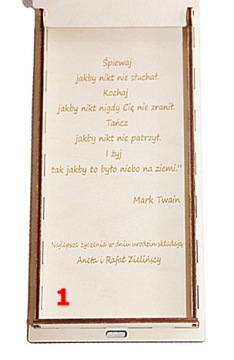 Śpiewaj
jakby nikt nie słuchał.
Kochaj
jakby nikt nigdy Cię nie zranił.
Tańcz
jakby nikt nie patrzył.
I żyj
tak jakby to było niebo na ziemi."
Mark Twain
Najlepsze życzenia w dniu urodzin składają
Aneta i Rafał Zielińscy
1